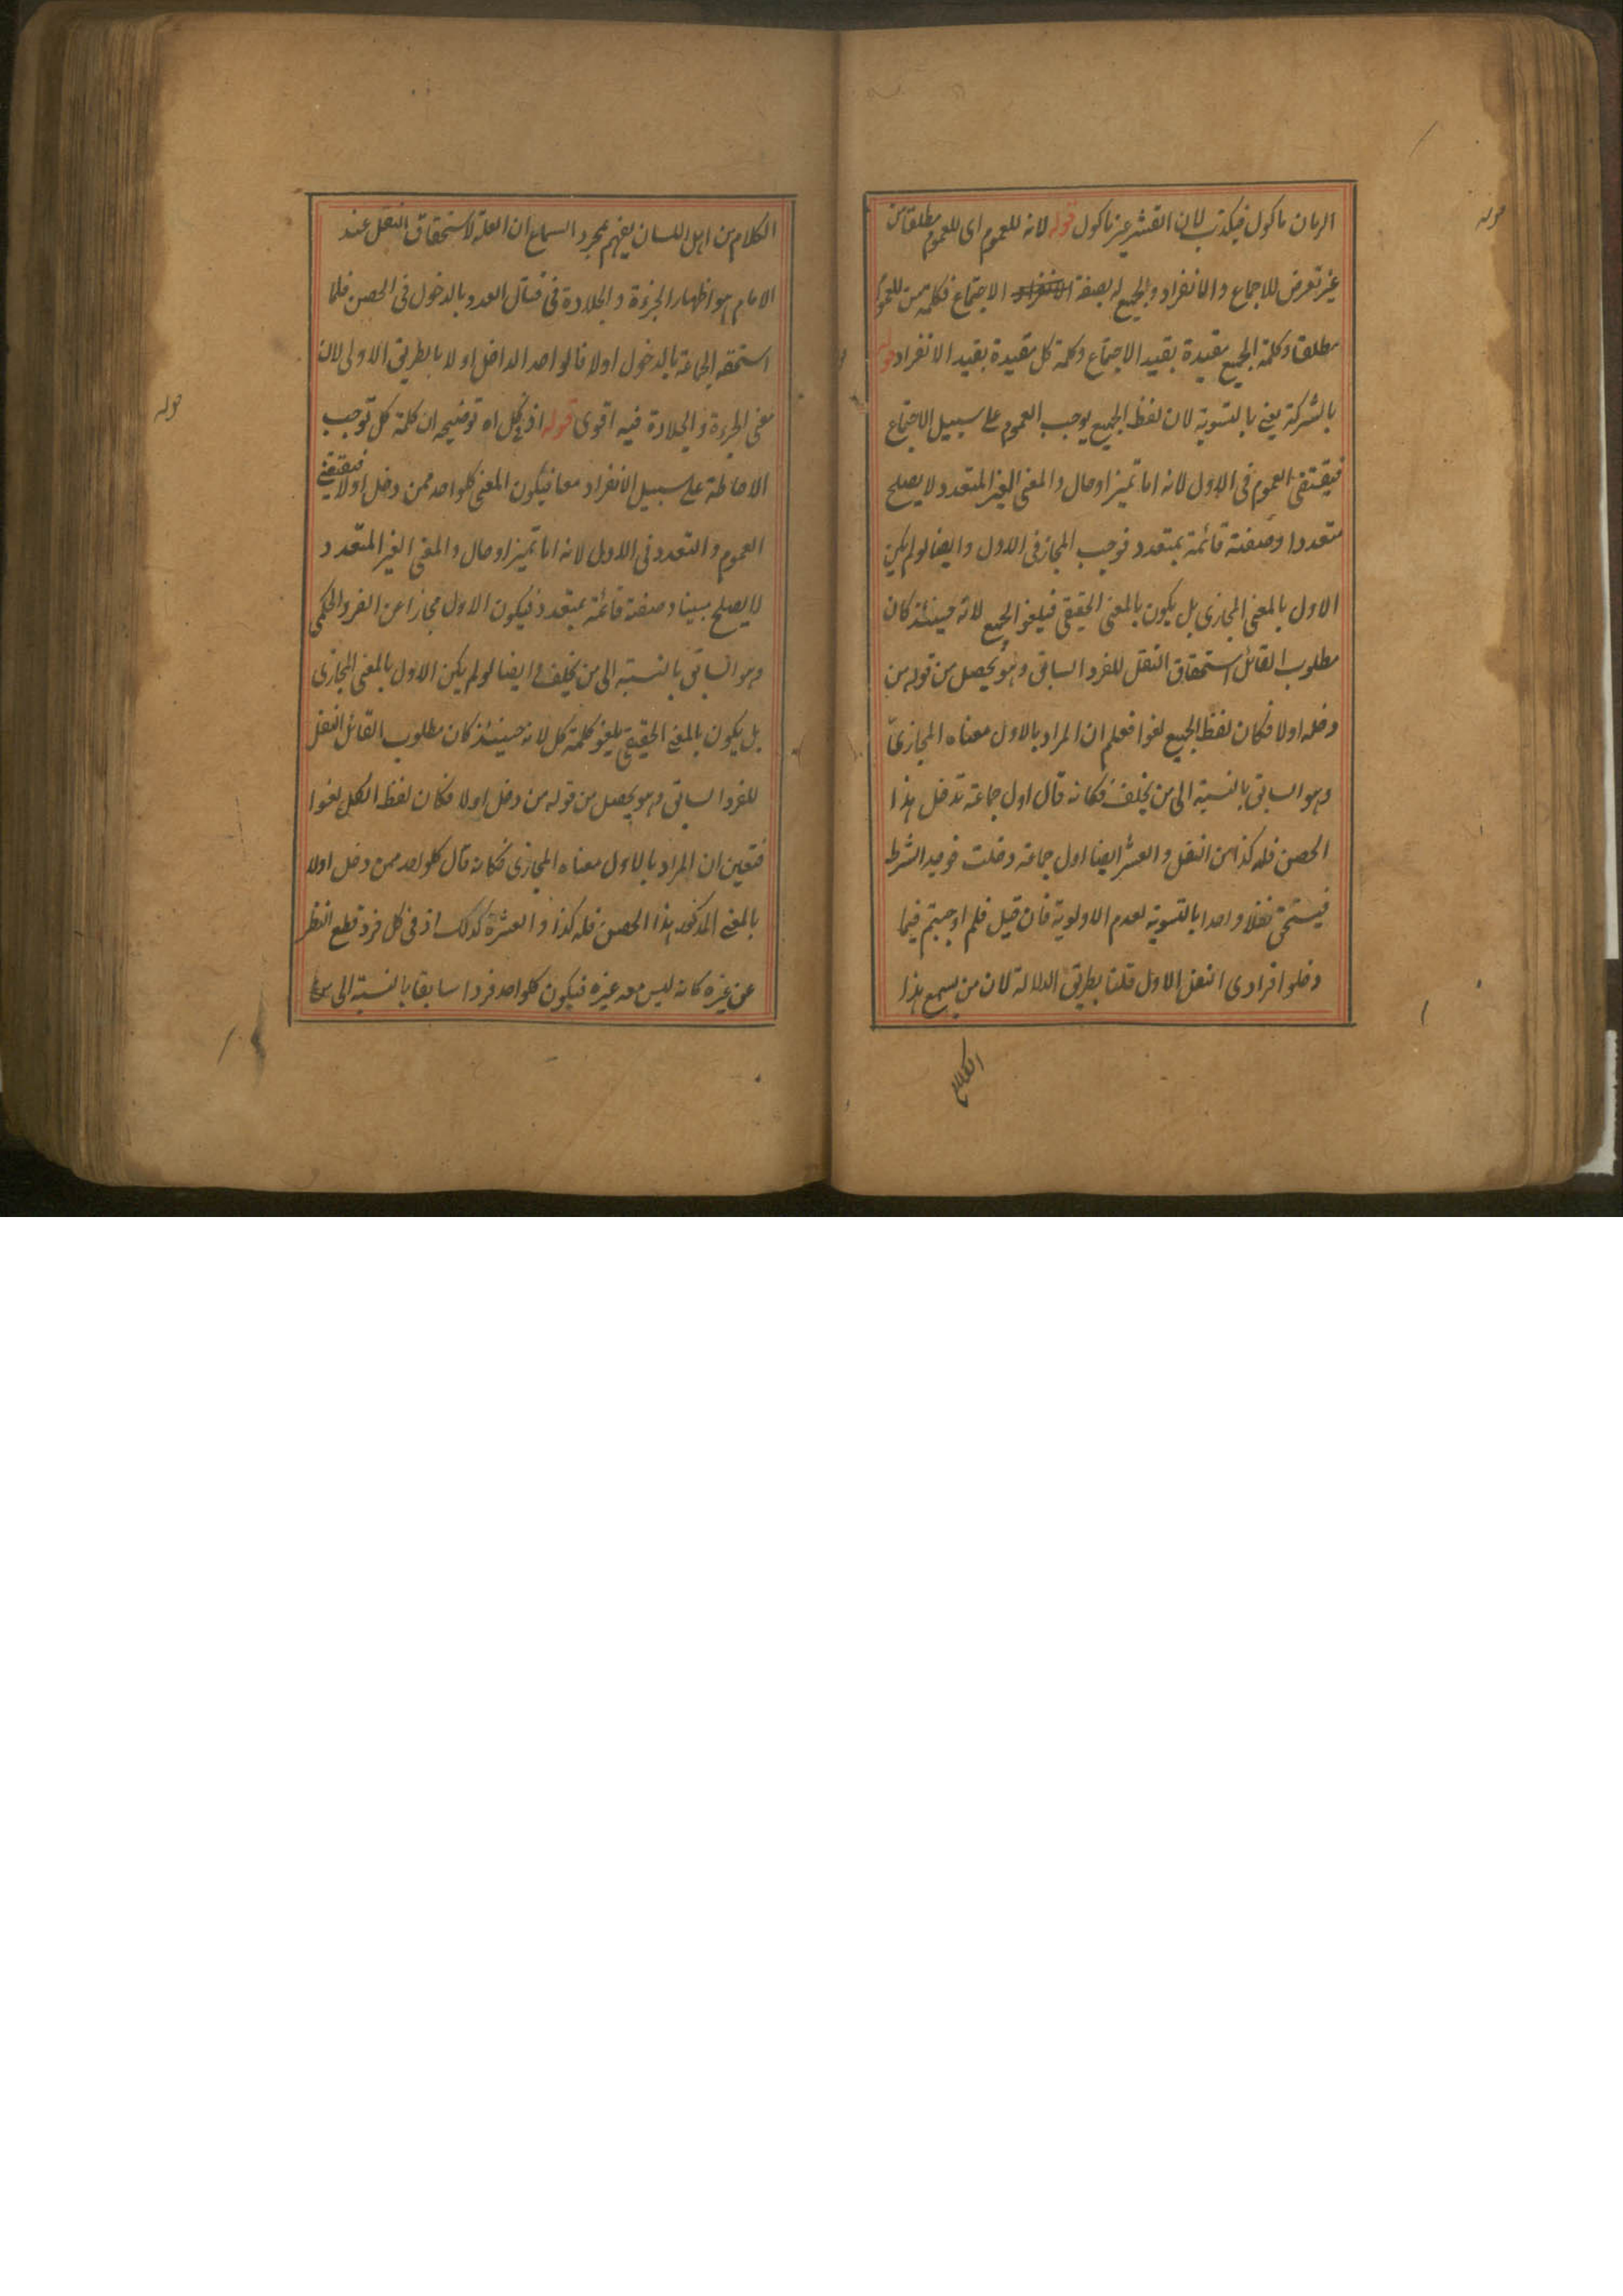 الرمان ماكول فيكذب لان القشر غير ماكول قوله لانه للعموم اى للعموم مطلقا من
غير تعرض للاجماع والانفراد والجميع له بصفة الانفراد الاجتماع فكلمة من للعموم
مطلقا وكلمة الجميع مقيدة بقيد الاجتماع وكلمة كل مقيدة بقيد الانفراد قوله
بالشركة يعنى بالتسوية لان لفظ الجميع يوجب العموم على سبيل الاجتماع
فيقتضى العموم فى الاول لانه اما تميز او حال والمعنى الغير المتعدد لا يصلح
متعددا وصفته قائمة بمتعدد فوجب المجاز فى الاول وايضا لو لم يكن
الاول بالمعنى المجازى بل يكون بالمعنى الحقيقى فيلغو الجميع لانه حينئذ كان
مطلوب القائل استحقاق النفل للفرد السابق وهو يحصل من قوله من
دخله اولا فكان لفظ الجميع لغوا فعلم ان المراد بالاول معناه المجازى
وهو السابق بالنسبة الى من تخلف فكانه قال اول جماعة تدخل هذا
الحصن فله كذا من النفل والعشر ايضا اول جماعة دخلت فوجد الشرط
فيستحق نفلا واحدا بالتسوية لعدم الاولوية فان قيل فلم اوجبتم فيما
دخلوا فرادى النفل الاول قلنا بطريق الدلالة لان من يسمع هذا
الكلام
قوله
الكلام من اهل اللسان يفهم بمجرد السماع ان العلة لاستحقاق النفل عند
الامام هو اظهار الجرءة والجلادة فى قتال العدو بالدخول فى الحصن فلما
استحقه الجماعة بالدخول اولا فالواحد الداخل اولا بالطريق الاولى لان
معنى الجرءة والجلادة فيه اقوى قوله اذ فى كل اه توضيحه ان كلمة كل توجب
الاحاطة على سبيل الانفراد معا فيكون المعنى كلواحد ممن دخل اولا فيقتضى
العموم والتعدد فى الاول لانه اما تميز او حال والمعنى الغير المتعدد
لا يصلح مبينا وصفته قائمة بمتعدد فيكون الاول مجازا عن الفرد الحكمى
وهو السابق بالنسبة الى من تخلف وايضا لو لم يكن الاول بالمعنى المجازى
بل يكون بالمعنى الحقيقى يلغو كلمة كل لانه حينئذ كان مطلوب القائل النفل
للفرد السابق وهو يحصل من قوله من دخل اولا فكان لفظ الكل لغوا
فتعين ان المراد بالاول معناه المجازى فكانه قال كلواحد ممن دخل اولا
بالمعنى المذكور هذا الحصن فله كذا والعشرة كذلك اذ فى كل فرد قطع النظر
عن غيره كانه ليس معه غيره فيكون كلواحد فردا سابقا بالنسبة الى من
قوله